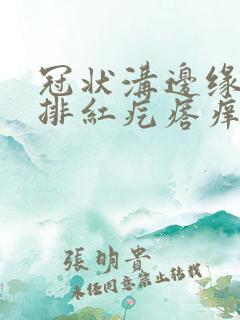 冠状溝邊缘
排紅疙瘩痒
張明貴
未任同意禁止转载